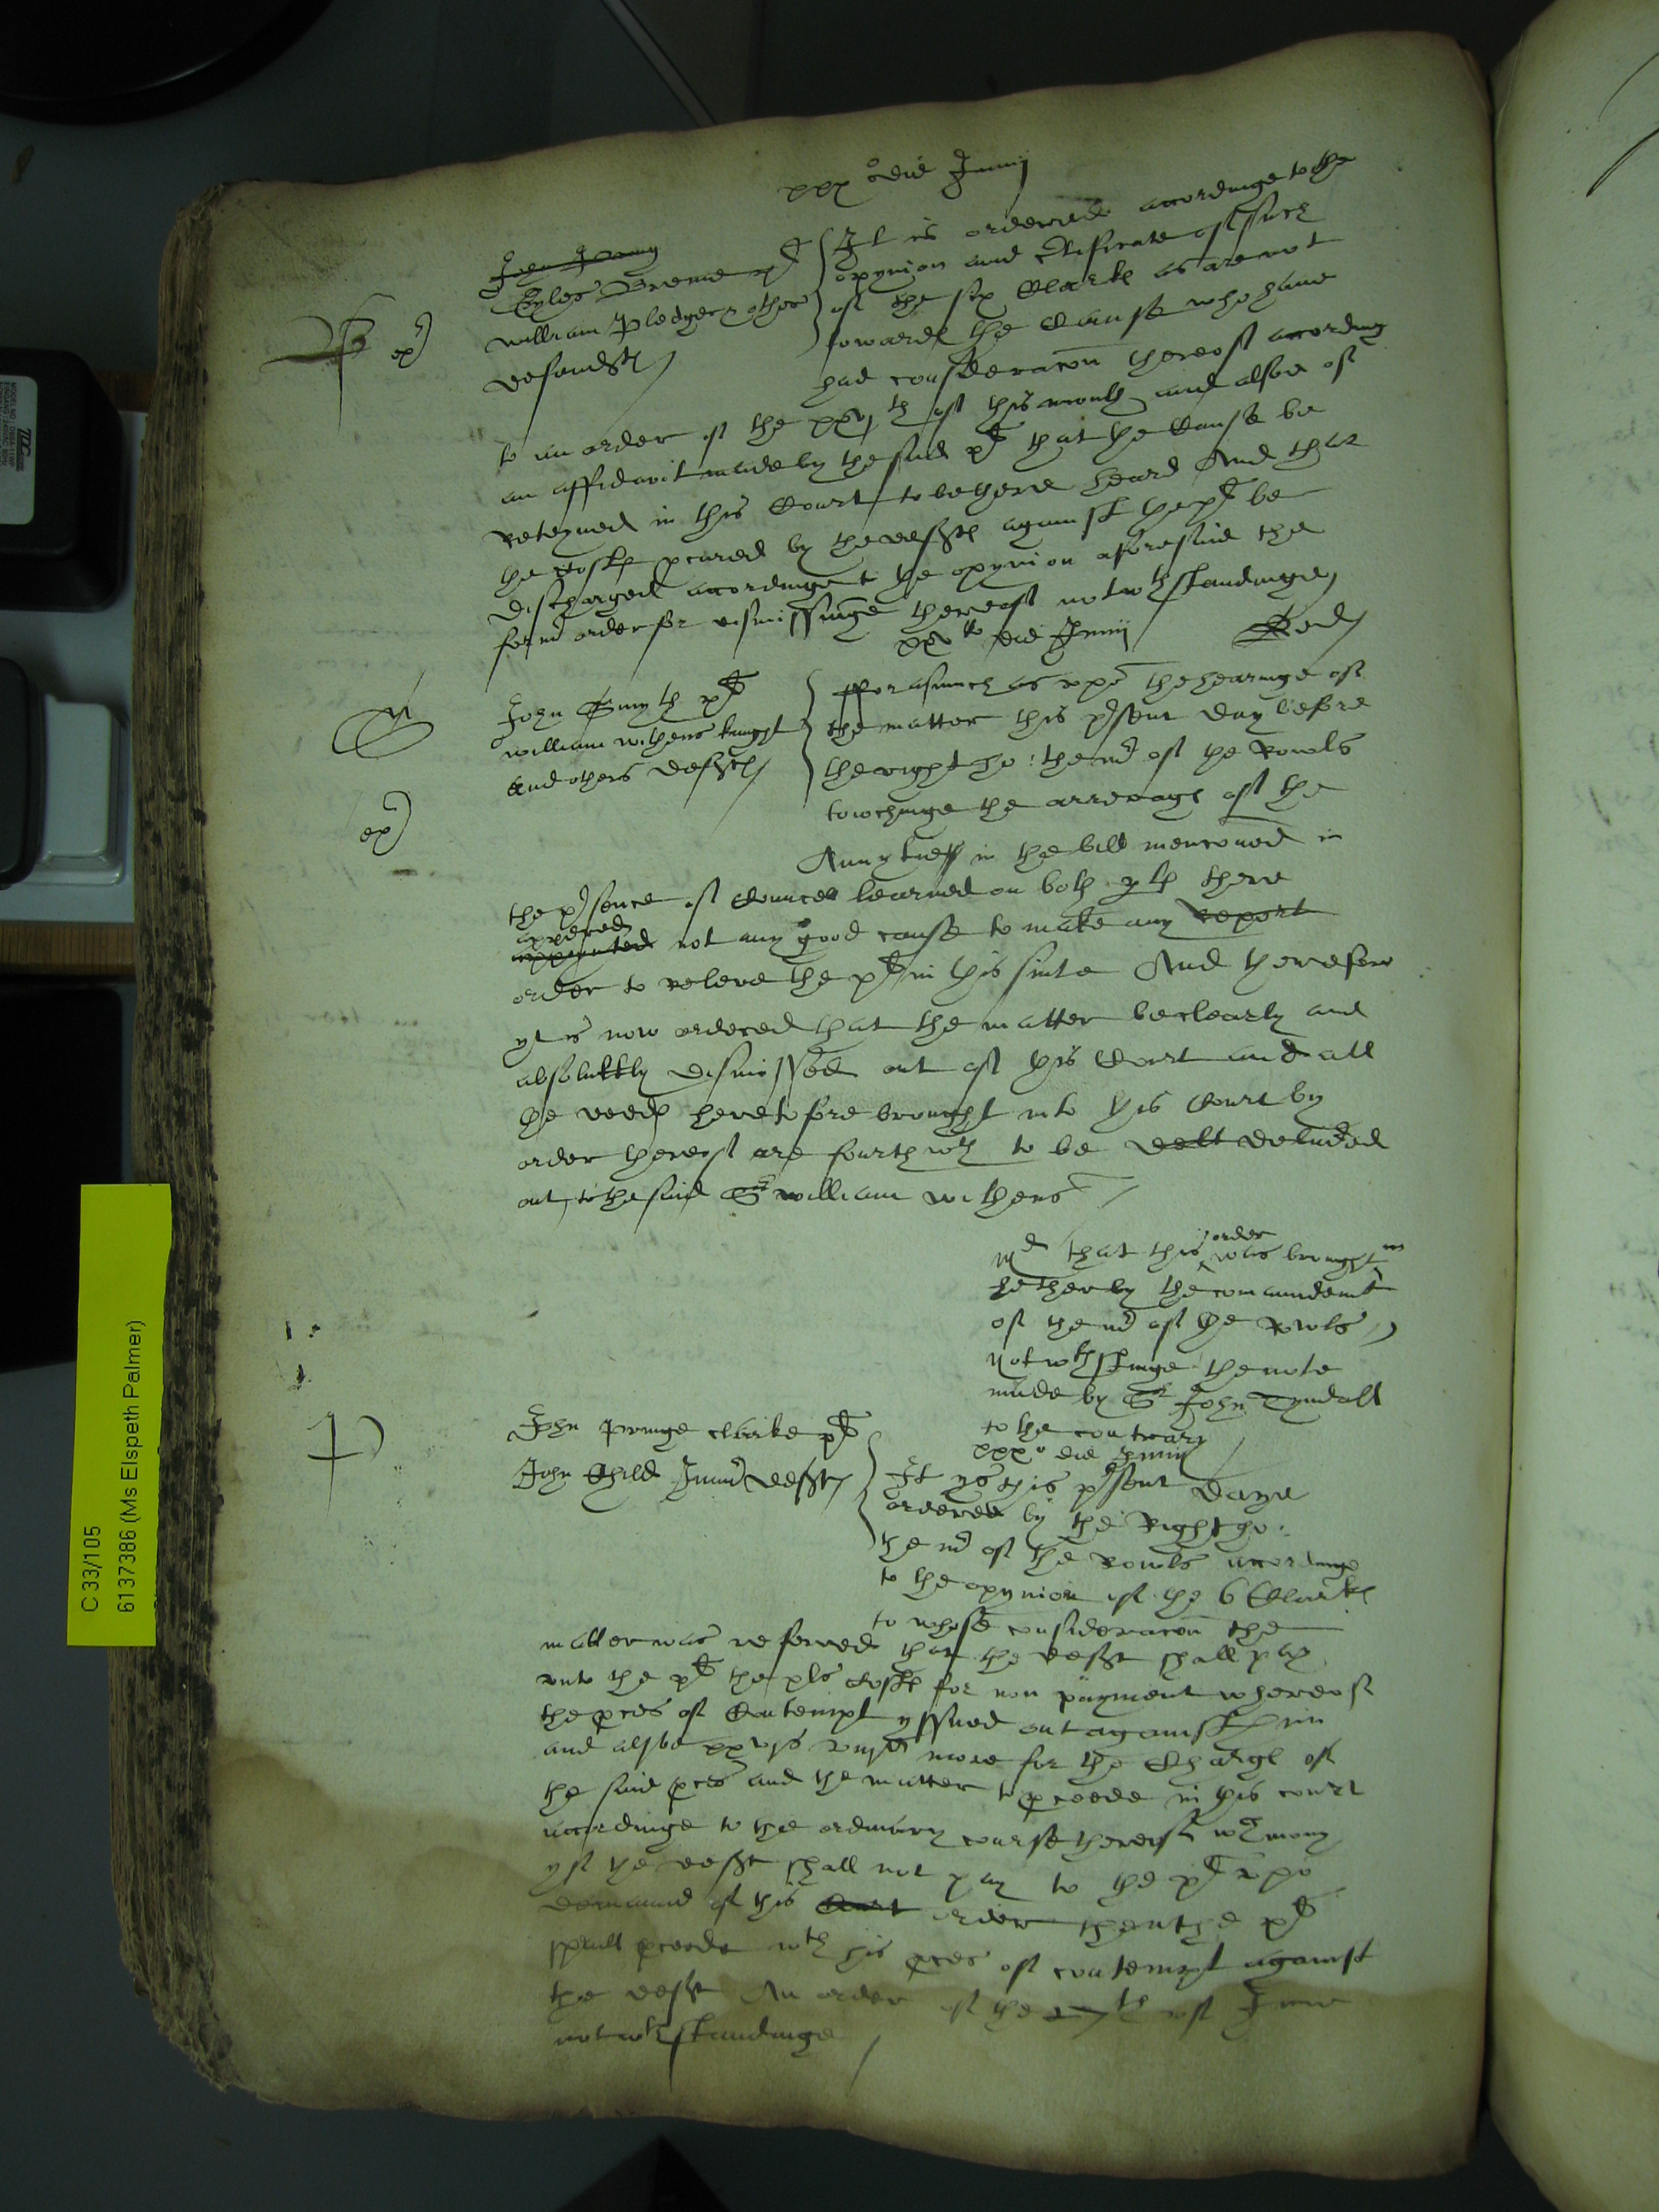 xxx o die Junij
John
Gyles Greene pl
william Pledger & other
defendtes
ex
It is ordered accordinge to the
opynion and Certificate of such
of the six Clarkes as are not
towardes the Cause who have
had consideracon thereof according
to an order of the xxvj th of this month and alsoe of
an affidavit made by the said pl that the Cause be
reteyned in this Court to be here heard And that
the costes pcured by the deftes against the pl be
discharged accordinge to the opynion aforesaid the
form order for dismissinge thereof not wth standinge
xxv to die Junij
John Smyth pl
william withens knight
and others deftes
ex
fforasmuch as vpon the hearinge of
the matter this psent day before
the right ho: the mr of the Rowls
towchinge the arrerages of the
Annyties in the bill menconed in
the psence of Councell learned on both ptes there
appered
appeareted not any good cause to make any report
order to releve the pl in this suite And therefore
yt is now ordered that the matter be clearly and
absoluttly dismissed out of this Court and all
the deedes heretofore brought into this Court by
order thereof are fourth wth to be delt delivered
out to the said Sr william withens
Md that this order was brought in
hether by the comaundemt
of the mr of the Rowls
Not wth stinge the note
made by Sr John Tyndall
to the contrary
xxx o die Junij
John Pringe clarke pl
John Child Junr deft
It ys this psent daye
ordered by the Right ho:
the mr of the Rowls accordinge
to the opynion of the 6 Clarkes
to whose consideracon the
matter was referred that the deft shall pay
vnto the pl the xls costes for non payment whereof
the pces of Contempt yssued out against him
and alsoe xxvjs viijd more for the Charges of
the said pces and the matter to pceede in this court
accordinge to the ordinary course thereof wch mony
yf the deft shall not pay to the pl vpon
demaund of this Court order then the pl
shall pceede wth his pces of contempt against
the deft An order of the th of June
not wth standinge
C 33/105
6137386 (Ms Elspeth Palmer)